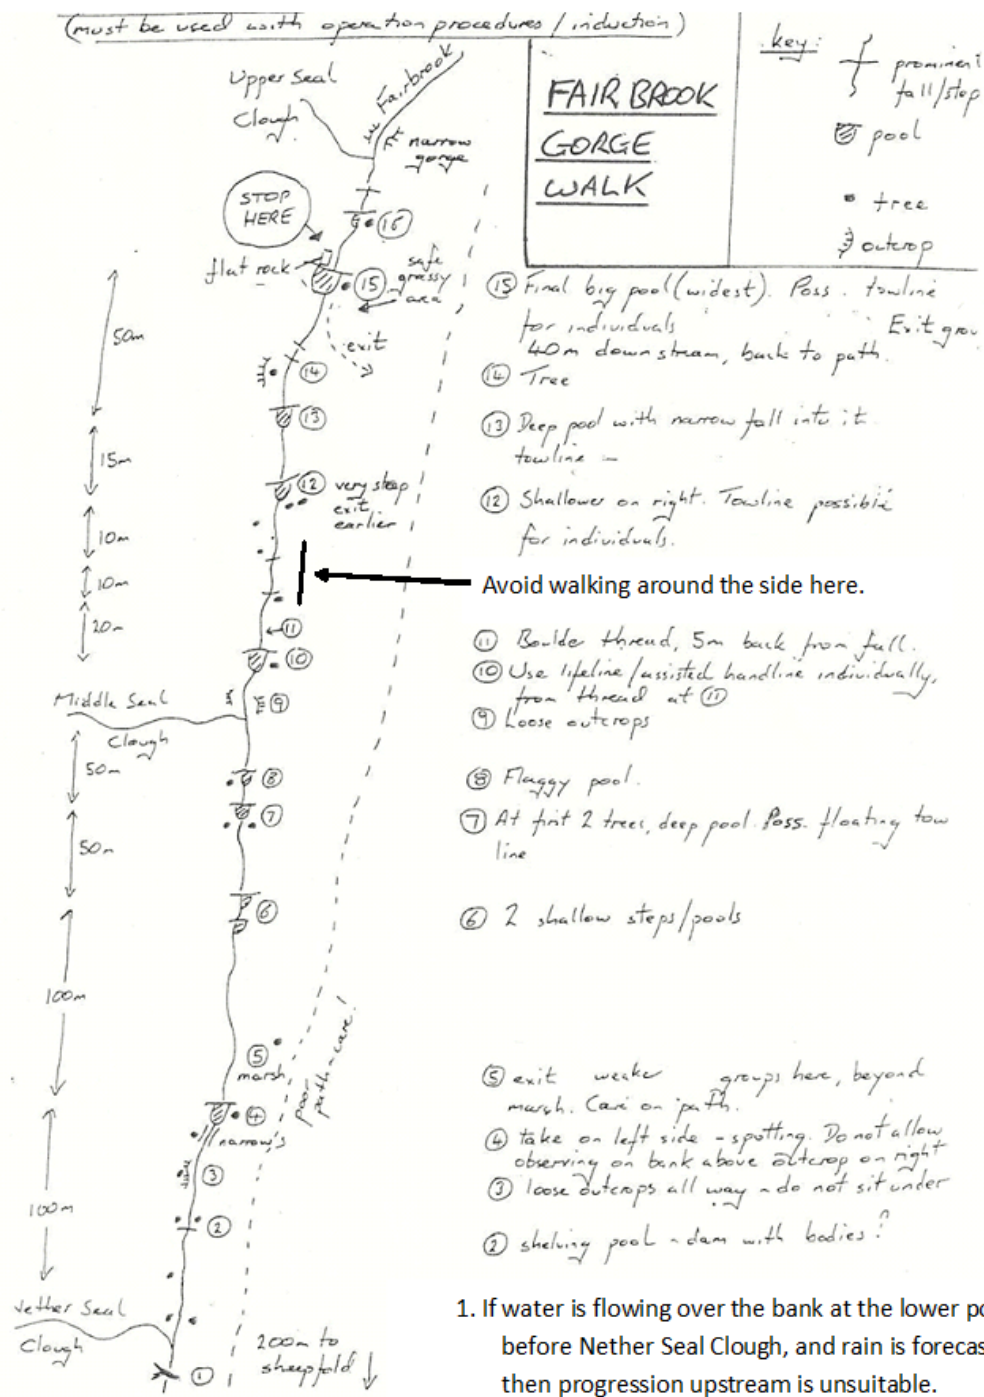 (must be used with operation procedures / induction)
Upper Seal
Clough
Fairbrook
narrow
gorge
STOP
HERE
flat rock
16
15
safe
grassy
area
exit
14
13
12
very steep
exit
earlier
11
10
Middle Seal
Clough
9
8
7
6
5
marsh
4
narrow's
3
2
Nether Seal
Clough
1
50m
15m
10m
10m
20m
50m
50m
100m
100m
poor
path - care!
200m to
sheepfold
FAIRBROOK
GORGE
WALK
key:
prominent
fall/step
pool
tree
outcrop
15 Final big pool (widest). Poss. towline
for individuals Exit
40m downstream, back to path.
14 Tree
13 Deep pool with narrow fall into it
towline -
12 Shallower on right. Towline possible
for individuals.
Avoid walking around the side here.
11 Boulder thread, 5m back from fall.
10 Use lifeline/assisted handline individually,
from thread at 11
9 Loose outcrops
8 Flaggy pool.
7 At first 2 trees, deep pool. Poss. floating tow
line
6 2 shallow steps/pools
5 exit weaker groups here, beyond
marsh. Care on path.
4 take on left side - spotting. Do not allow
observing on bank above outcrop on right
3 loose outcrops all way - do not sit under
2 shelving pool - dam with bodies?
1. If water is flowing over the bank at the lower
before Nether Seal Clough, and rain is forecas
then progression upstream is unsuitable.